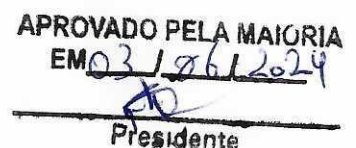 APROVADO PELA MAIORIA
EM 03 / 06 / 2024
Presidente